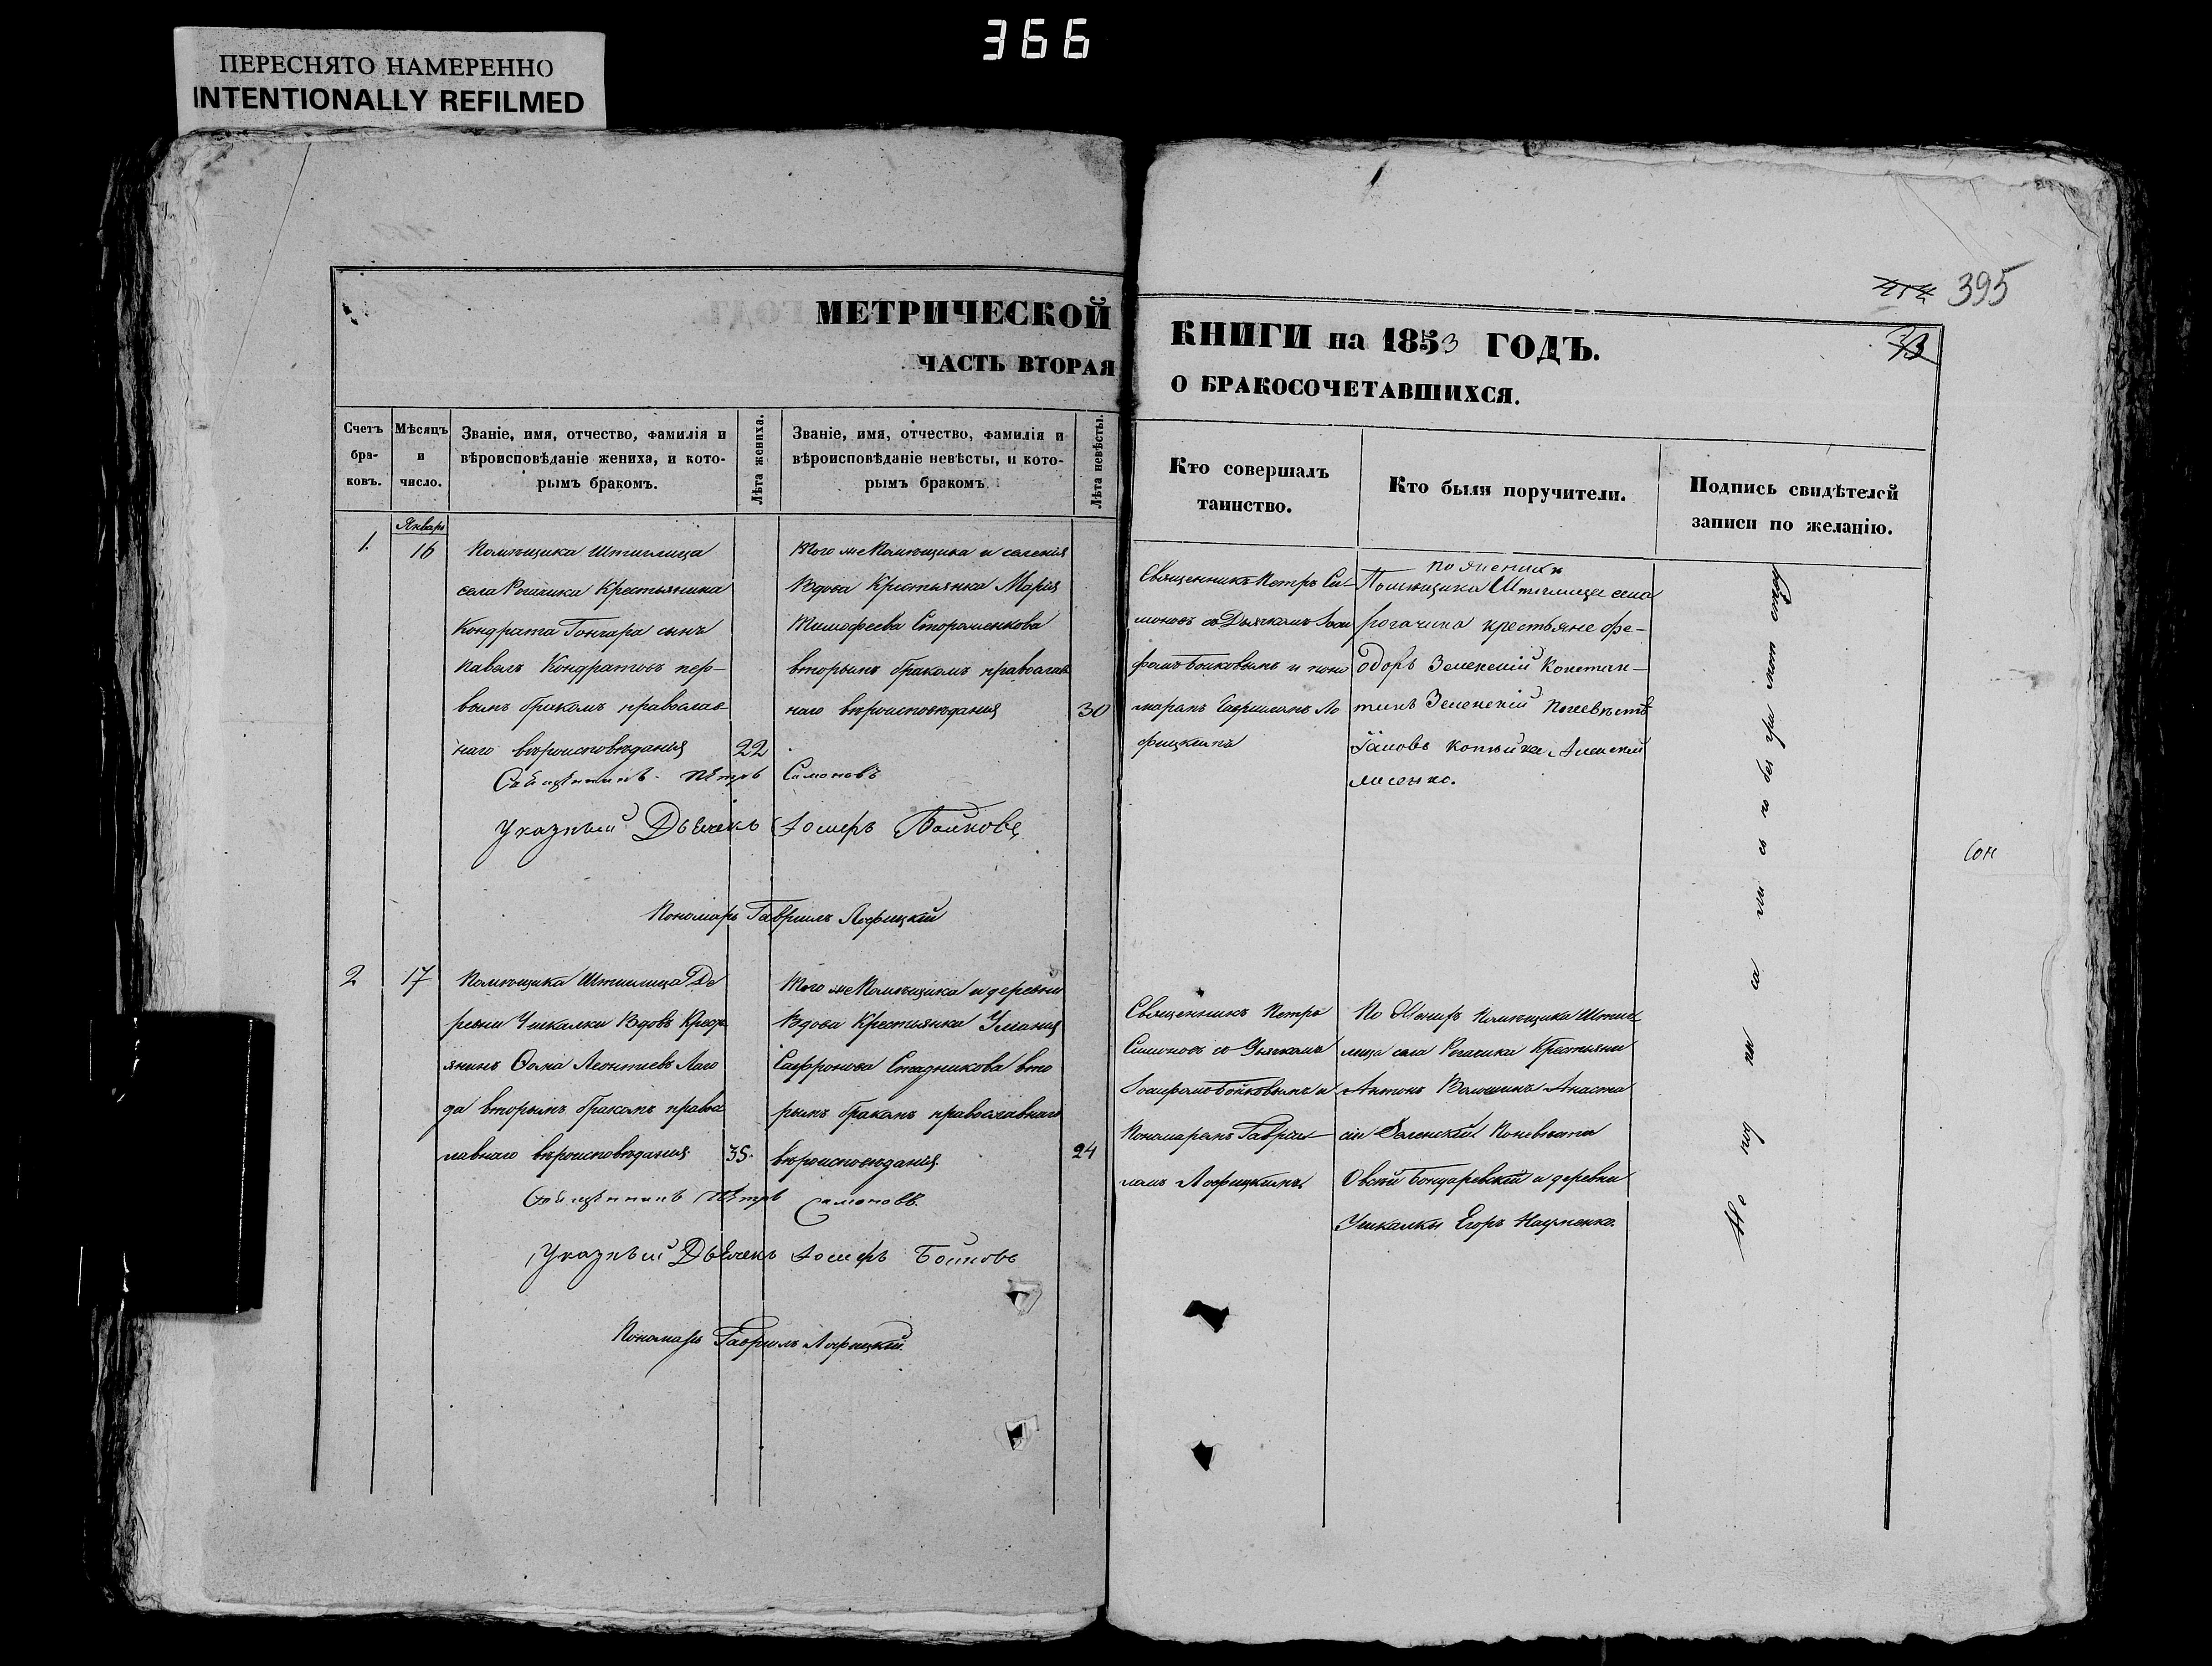 366
ПЕРЕСНЯТО НАМЕРЕННО
INTENTIONALLY REFILMED
395
МЕТРИЧЕСКОЙ
КНИГИ на 1853 ГОДЪ.
ЧАСТЬ ВТОРАЯ
О БРАКОСОЧЕТАВШИХСЯ.
Счетъ бра-ковъ.
Мѣсяцъ и число.
Званіе, имя, отчество, фамилія и
вѣроисповѣданіе жениха, и кото-
рымъ бракомъ.
Лѣта жениха.
Званіе, имя, отчество, фамилія и
вѣроисповѣданіе невѣсты, и кото-
рымъ бракомъ.
Лѣта невѣсты.
Кто совершалъ
таинство.
Кто были поручители.
Подпись свидѣтелей
записи по желанію.
1.
Январь
16
Помѣщика Штиглица
села Рогачика Крестьянина
Кондрата Гончара сынъ
Павелъ Кондратовъ пер-
вымъ бракомъ православ-
наго вѣроисповѣданія
22
Того же Помѣщика и селенія
Вдова Крестьянка Марія
Тимофеева Стороженкова
вторымъ бракомъ православ
наго вѣроисповѣданія
30
Священникъ Петръ Си-
моновъ со Дьячкомъ Іоси
фомъ Бойковымъ и поно
маремъ Гавриломъ Ло
фицкимъ
по женихѣ
Помѣщика Штиглица села
рогачика крестьяне Фе-
одоръ Зеленскій Констан-
тинъ Зеленскій по невѣстѣ
Іаковъ Копѣйка Алексей
Лисенко.
Священникъ Петръ Симоновъ
Указный Дьячекъ Іосифъ Бойковъ
Пономарь Гаврилъ Лофицкій
2
17
Помѣщика Штиглица Де
ревни Ушкалки Вдовъ Крест
янинъ Ѳома Леонтіевъ Лаго
да вторымъ бракомъ правос
лавнаго вѣроисповѣданія
35.
Того же Помѣщика и деревни
Вдова Крестьянка Уліанія
Сафронова Стадникова вто
рымъ бракомъ православнаго
вѣроисповѣданія.
24
Священникъ Петръ
Симоновъ со Дьячкомъ
Іосифомъ Бойковымъ и
Пономаремъ Гаври-
ломъ Лофицкимъ
По Женихѣ Помѣщика Штиг-
лица села Рогачика Крестьяни
Антонъ Волошинъ Анаста
сій Зеленскій По невѣсти
Овсѣй Бондаревскій и деревни
Ушкалки Егоръ Науменко.
Священникъ Петръ Симоновъ.
Указный Дьячекъ Іосифъ Бойковъ
Пономарь Гаврилъ Лофицкій.
Не под пи са ли сь по без гра мот ству